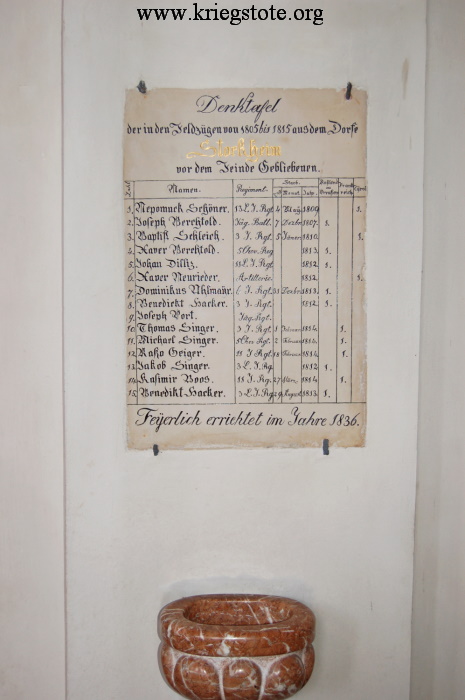 www.kriegstote.org
Denktafel
der in den Feldzügen von 1805 bis 1815 aus dem Dorfe
Stockheim
vor dem Feinde Gebliebenen.
Zahl Namen. Regiment. Monat. Jahr.
1. Nepomuck Schöner. 13 L. I. Rgt. 4 1809
2. Joseph Berchtold. Jäg. Batl. 7 Dezbr 1807. 1.
3. Baptist Schleich. 3 I. Rgt. 5 Jäner 1810. 1.
4. Xaver Berchtold. 1813. 1.
5. Johan Dillitz. I. Rgt. 1812 1.
6. Xaver Neurieder. Artillerie. 1812. 1.
7. Dominikus Uhlmair. I. Rgt. Dezbr 1813. 1.
8. Benedikt Hacker. 3 I. Rgt. 1812 1.
9. Joseph Port. Jäg. Rgt.
10. Thomas Singer. 3 I. Rgt. 1 1814. 1.
11. Michael Singer. Rgt. 2 1814. 1.
12. Geiger. 11 I Rgt. 18 1814 1.
13. Jakob Singer. 3 L. I. Rg 1812 1.
14. Kasimir Voos. 11 I. Rg. 27 März 1814 1.
15. Benedikt Hacker. 3 L I. Rg. 29 August 1813. 1.
Feÿerlich errichtet im Jahre 1836.